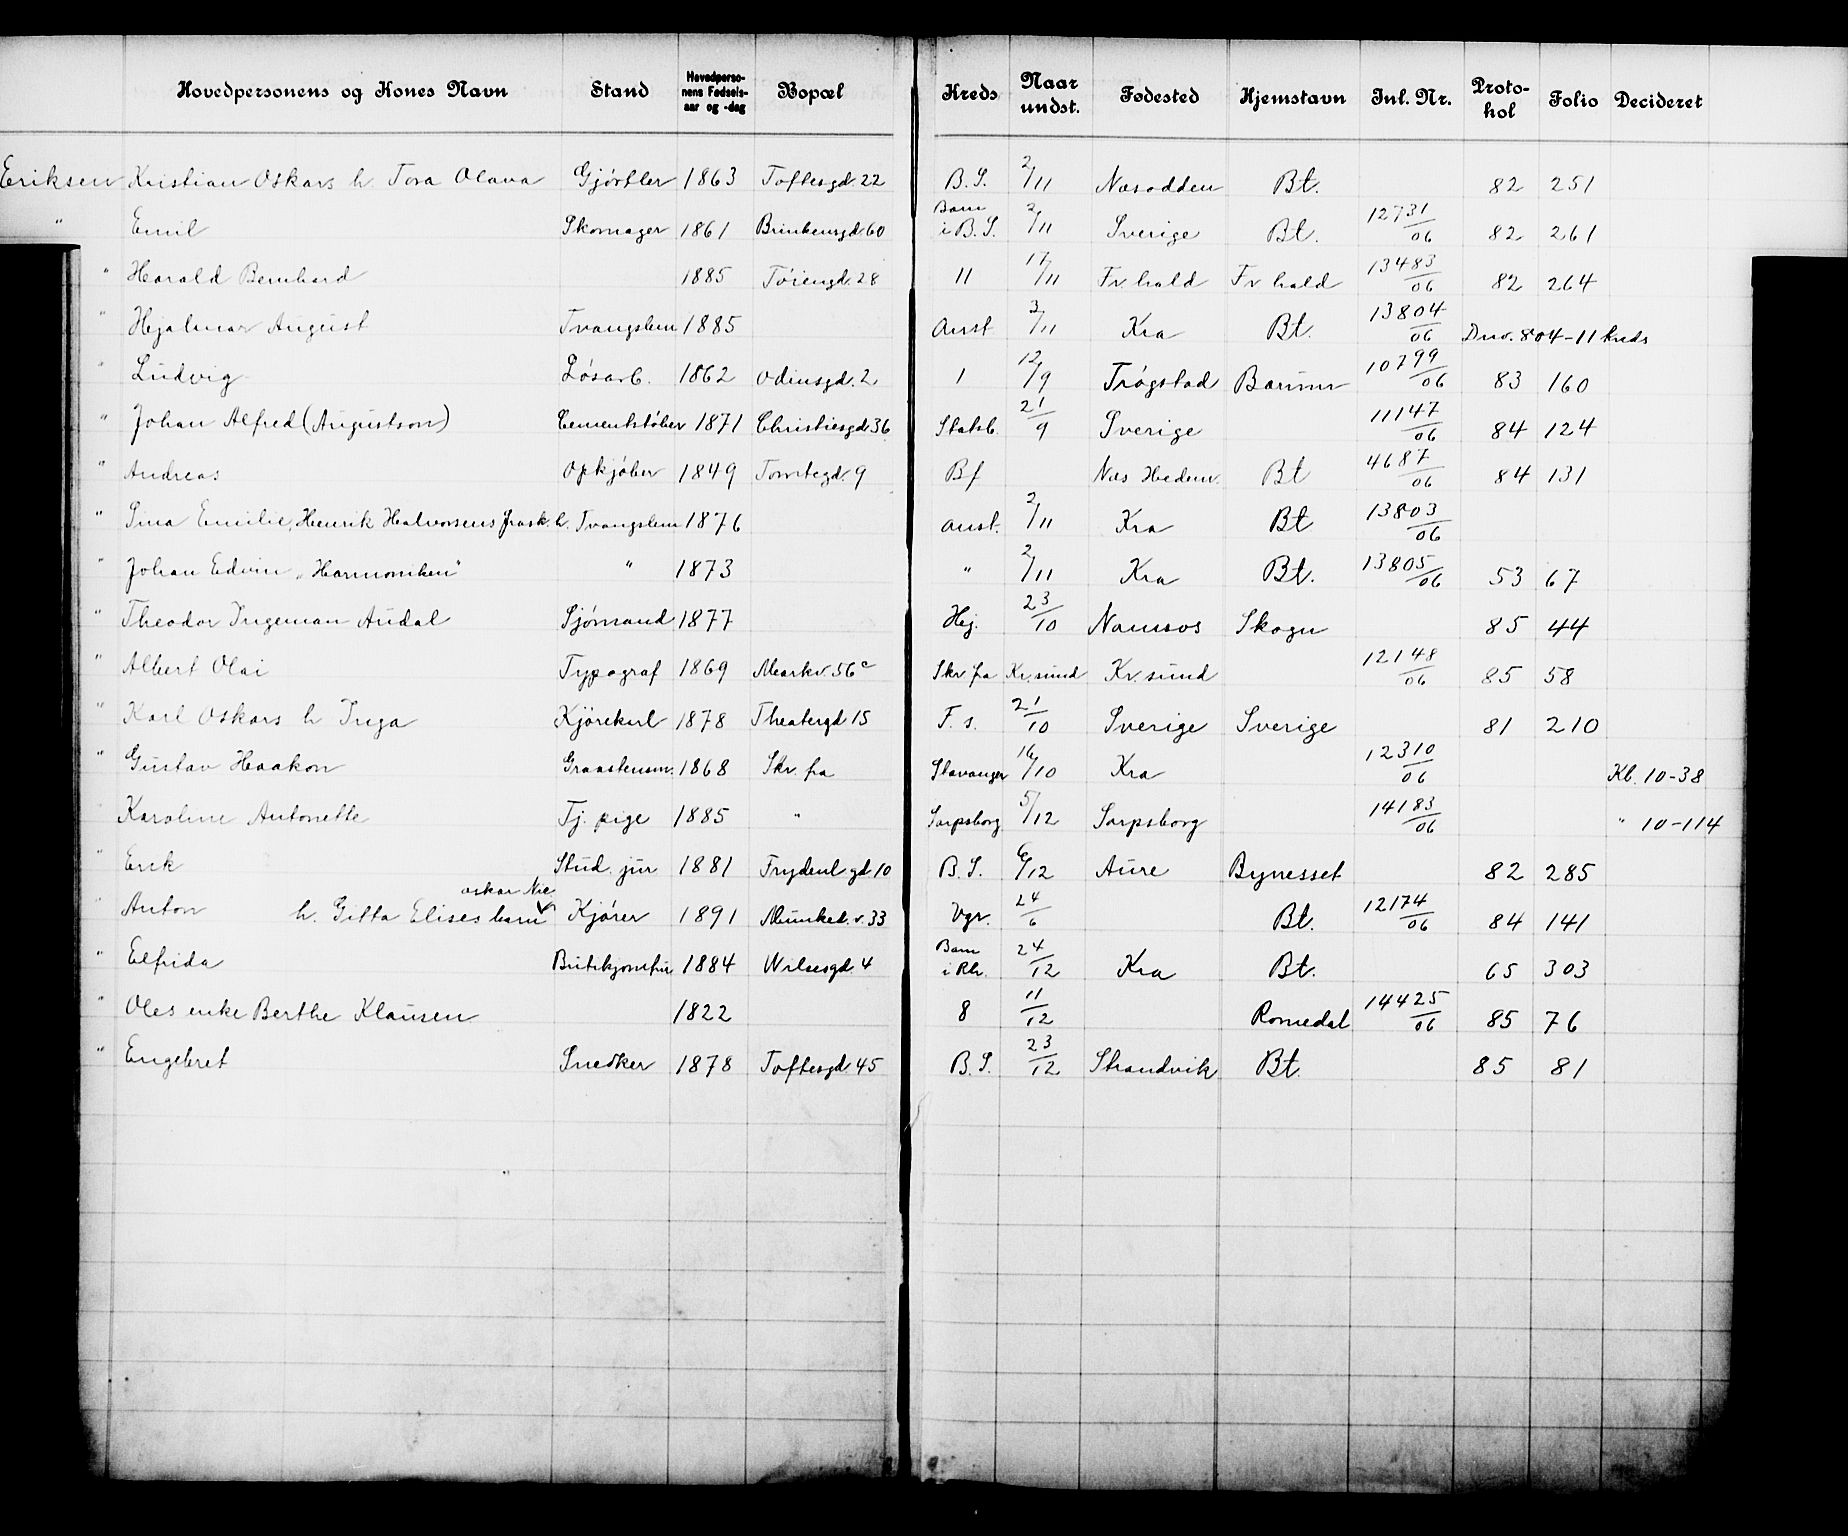 Hovedpersonens og Kones Navn Stand Hovedperso-nens Fødsels-aar og -dag Bopæl Kreds Naar undst. Fødested Hjemstavn Inl. Nr. Proto-kol Folio Decideret
Eriksen Kristian Oskars h. Tora Olava Gjørtler 1863 Toftesgd. 22 B.S. 2/11 Næsodden Bt. 82 251
" Emil Skomager 1861 Brinkensgd 60 Barn i B.S. 2/11 Sverige Bt. 12731/06 82 261
" Harald Bernhard 1885 Tøiengd. 28 11 17/11 Fr. hald Fr hald 13483/06 82 264
" Hjalmar August Tvangslem 1885 Anst 3/11 Kra Bt. 13804/06 Div. 804-11 kreds
" Ludvig Løsarb. 1862 Odinsgd. 2 1 12/9 Trøgstad Bærum 10799/06 83 160
" Johan Alfred (Augustson) Cementstøber 1871 Christiesgd 36 Statsb. 21/9 Sverige 11147/06 84 124
" Andreas Opkjøber 1849 Tomtegd. 9 Bf Næs Hedem. Bt 4687/06 84 131
" Sina Emilie, Henrik Halvorsens frask. h. Tvangslem 1876 Anst. 2/11 Kra Bt 13803/06
" Johan Edvin „Harmoniken" " 1873 " 2/11 Kra Bt. 13805/06 53 67
" Theodor Ingeman Audal Sjømand 1877 Hej. 23/10 Namsos Skogn 85 44
" Albert Olai Typograf 1869 Markv. 56c Skr. fra Kr. sund Kr. sund 12148/06 85 58
" Karl Oskars h Inga Kjørekarl 1878 Theatergd 15 F.s. 21/10 Sverige Sverige 81 210
" Gustav Haakon Graastensm. 1868 Skr. fra Stavanger 16/10 Kra 12310/06 Kb. 10-38
Karoline Antonette Tj. pige 1885 " Sarpsborg 5/12 Sarpsborg 14183/06 " 10-114
" Erik Stud. jur 1881 Frydenl gd 10 B.S. 6/12 Aure Bynesset 82 285
" Anton h. Gitta Elises barn oskar Nic Kjører 1891 Munked. v. 33 Vgr. 24/6 Bt. 12174/06 84 141
" Elfrida Butikjomfru 1884 Wilsesgd. 4 Barn i Rh. 24/12 Kra Bt. 65 303
" Oles enke Berthe Klausen 1822 8 11/12 Romedal 14425/06 85 76
" Engebret Snedker 1878 Toftesgd. 45 B.S. 23/12 Strandvik Bt. 85 81